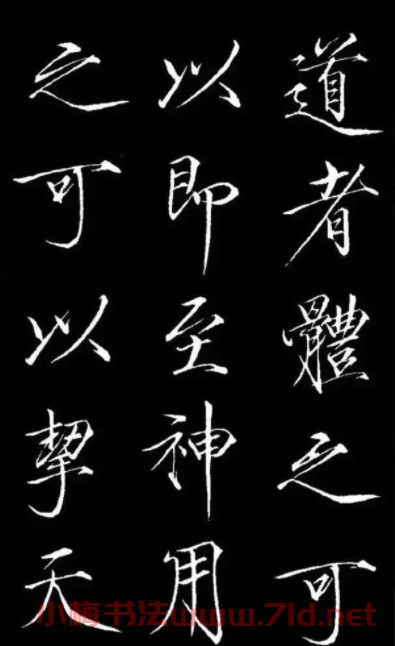 道者體之可
以即至神用
之可以挈天
小梅书法www.7ld.net